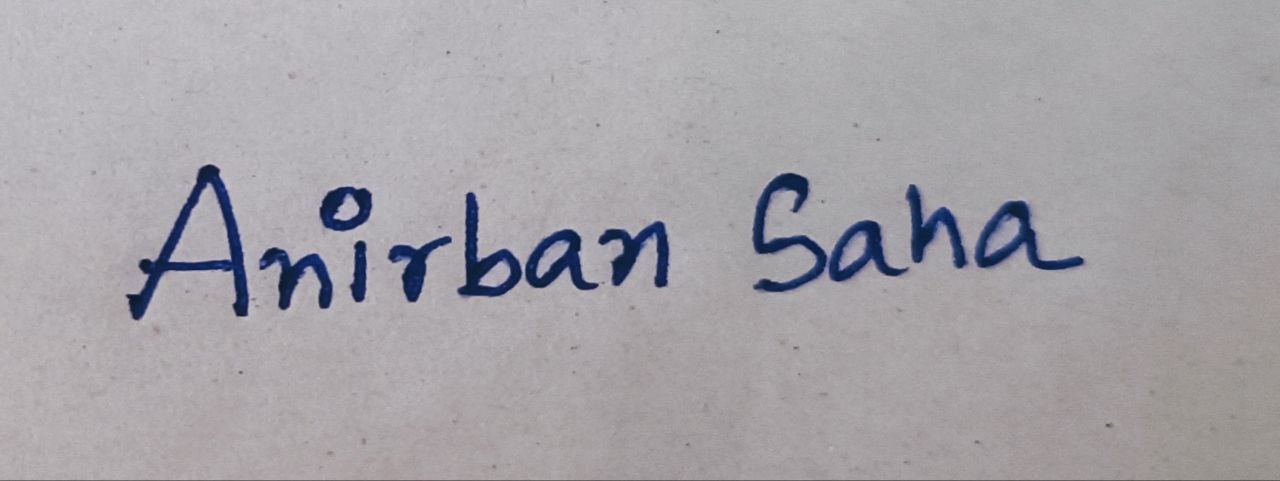 Anirban Saha